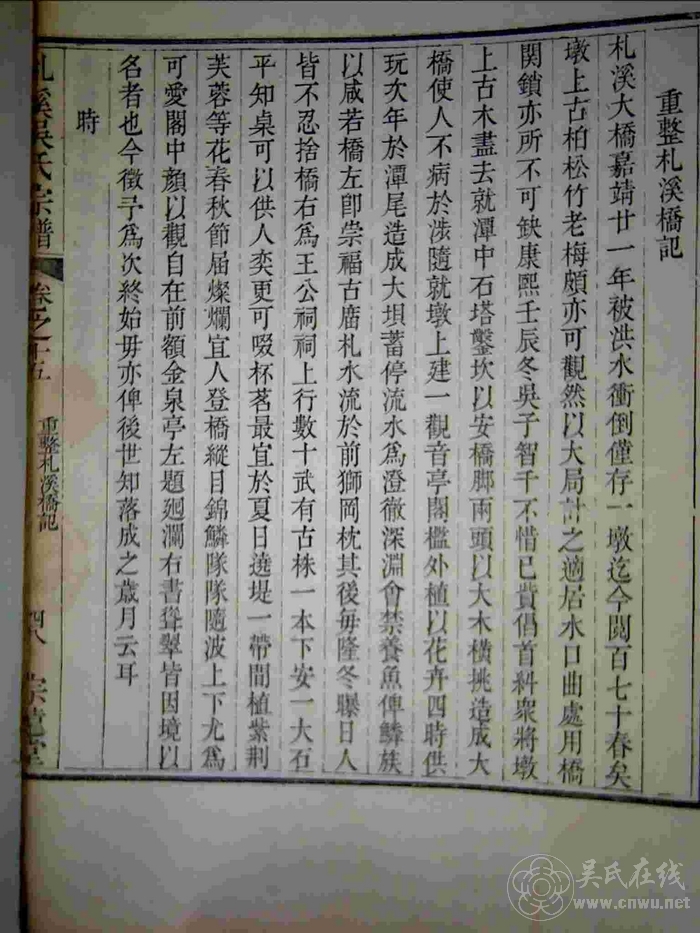 重整札溪橋記
札溪大橋嘉靖廿一年被洪水衝倒僅存一墩迄今閱百七十春矣
墩上古柏松竹老梅頗亦可觀然以大局計之適居水口曲處用橋
関鎖亦所不可缺康熙壬辰冬吳子智千不惜已貲倡首科衆將墩
上古木盡去就潭中石塔鑿坎以安橋脚兩頭以大木橫挑造成大
橋使人不病於涉隨就墩上建一觀音亭閣檻外植以花卉四時供
玩次年於潭尾造成大垻蓄停流水爲澄徹深淵會禁養魚俾鱗族
以咸若橋左卽崇福古庿札水流於前獅岡枕其後每隆冬曝日人
皆不忍捨橋右爲王公祠祠上行數十武有古株一本下安一大石
平知桌可以供人奕更可啜杯茗最宜於夏日遶堤一帶間植紫荆
芙蓉等花春秋節屆燦爛宜人登橋縱目錦鱗隊隊隨波上下尤爲
可愛閣中顏以觀自在前額金泉亭左題廻瀾右書聳翠皆因境以
名者也今徵予爲次終始毋亦俾後世知落成之歳月云耳
時
札溪吳氏宗譜
卷之十五
重整札溪橋記
四八
吴氏在线
www.cnwu.net